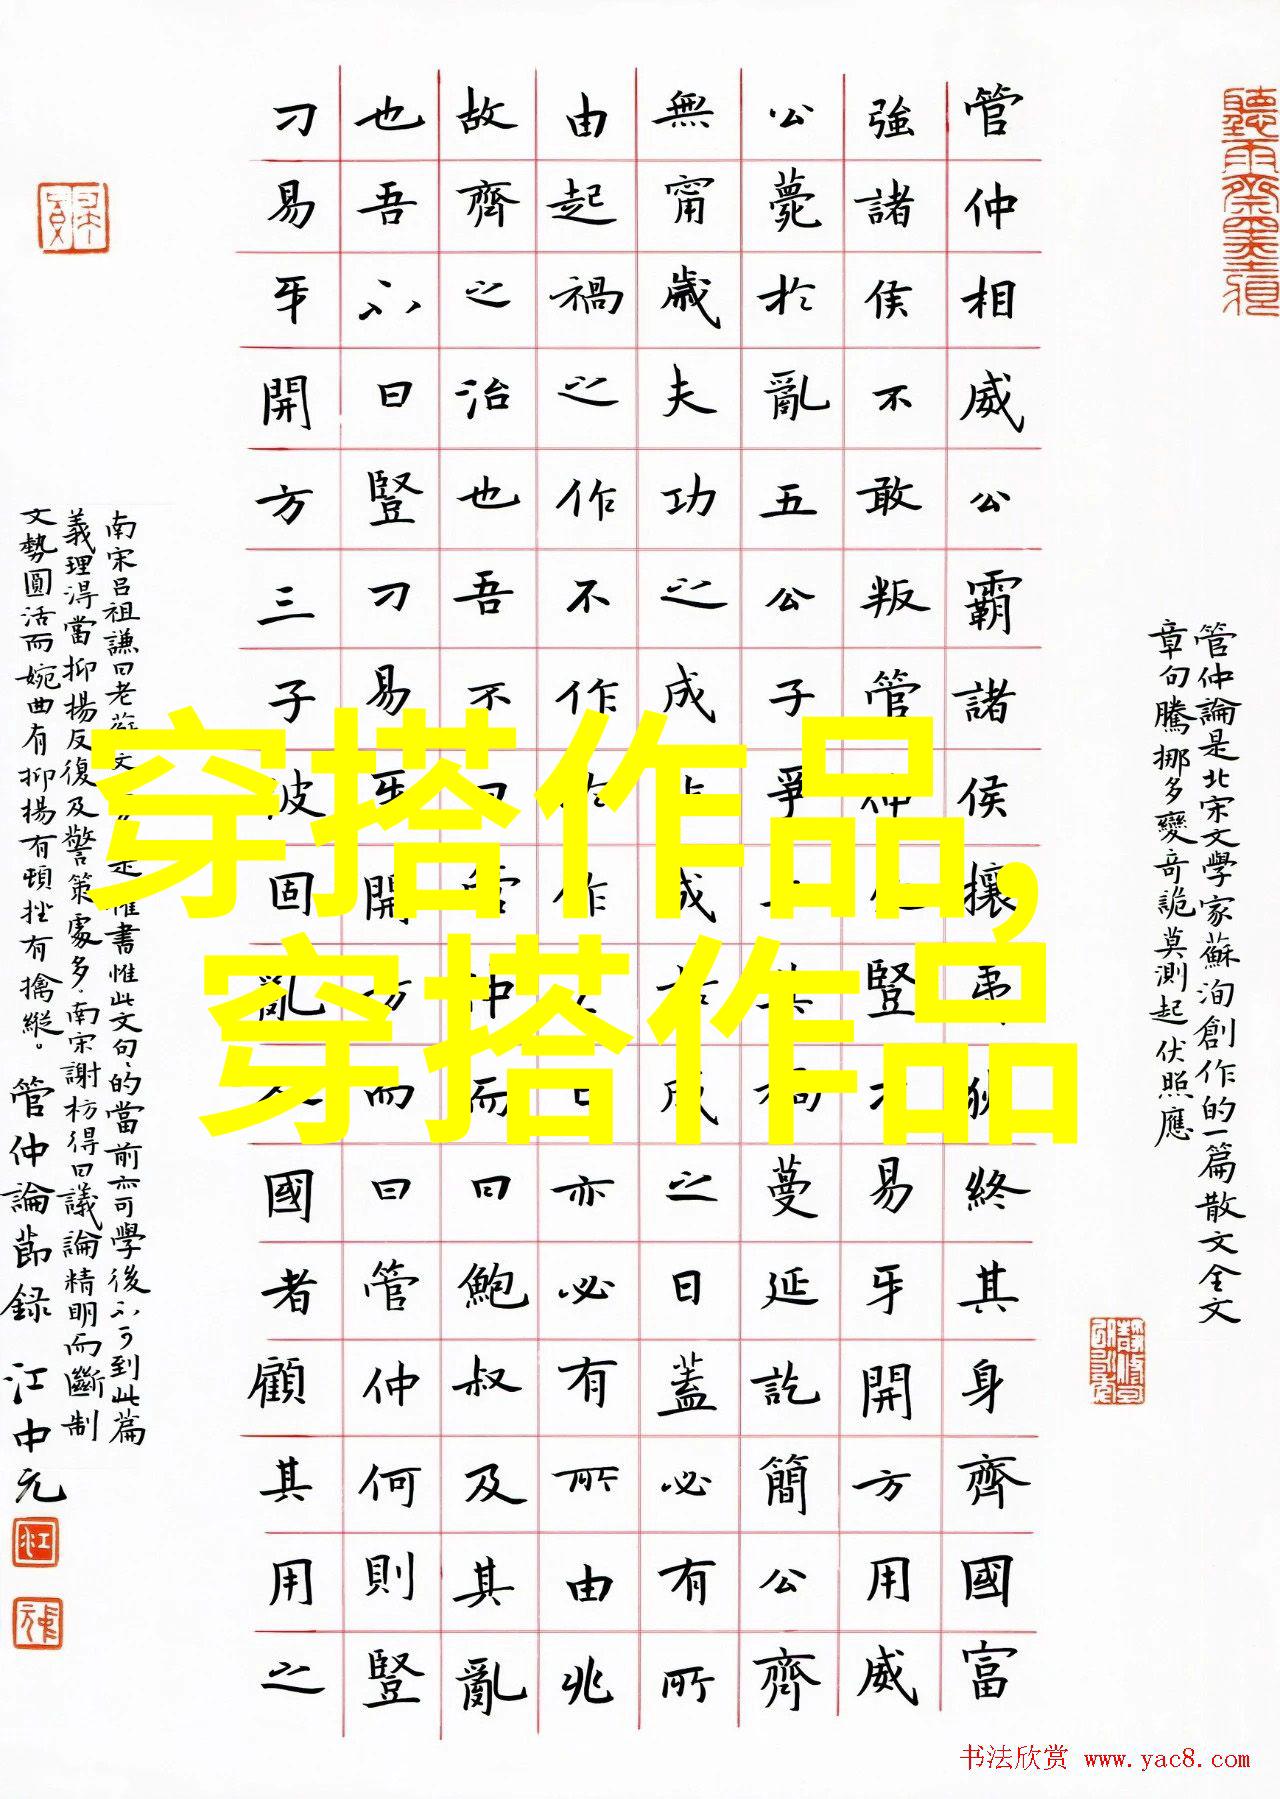 管仲論是北宋文學家蘇洵創作的一篇散文全文
章句騰挪多變奇詭莫測起伏照應
管仲相威公霸諸侯攘夷狄終其身齊國富
強諸侯不敢叛管仲死豎刁易牙開方用威
公薨於亂五公子爭立其禍蔓延訖簡公齊
無甯歲夫功之成非成於成之日蓋必有所
由起禍之作不作於作之日亦必有所由兆
故齊之治也吾不曰管仲而曰鮑叔及其亂
也吾不曰豎刁易牙開方而曰管仲何則豎
刁易牙開方三子彼固亂人國者顧其用之
南宋吕祖謙曰老蘇文是惟書惟此文句句的當前亦可學後不可到此篇
義理淂當抑揚反復及警策處多南宋謝枋得曰議論精明而斷制
文勢圓活而婉曲有抑揚有頓挫有擒縱。管仲論節録 江中元
穿搭作品,
穿搭作品
书法欣赏 www.yac8.com